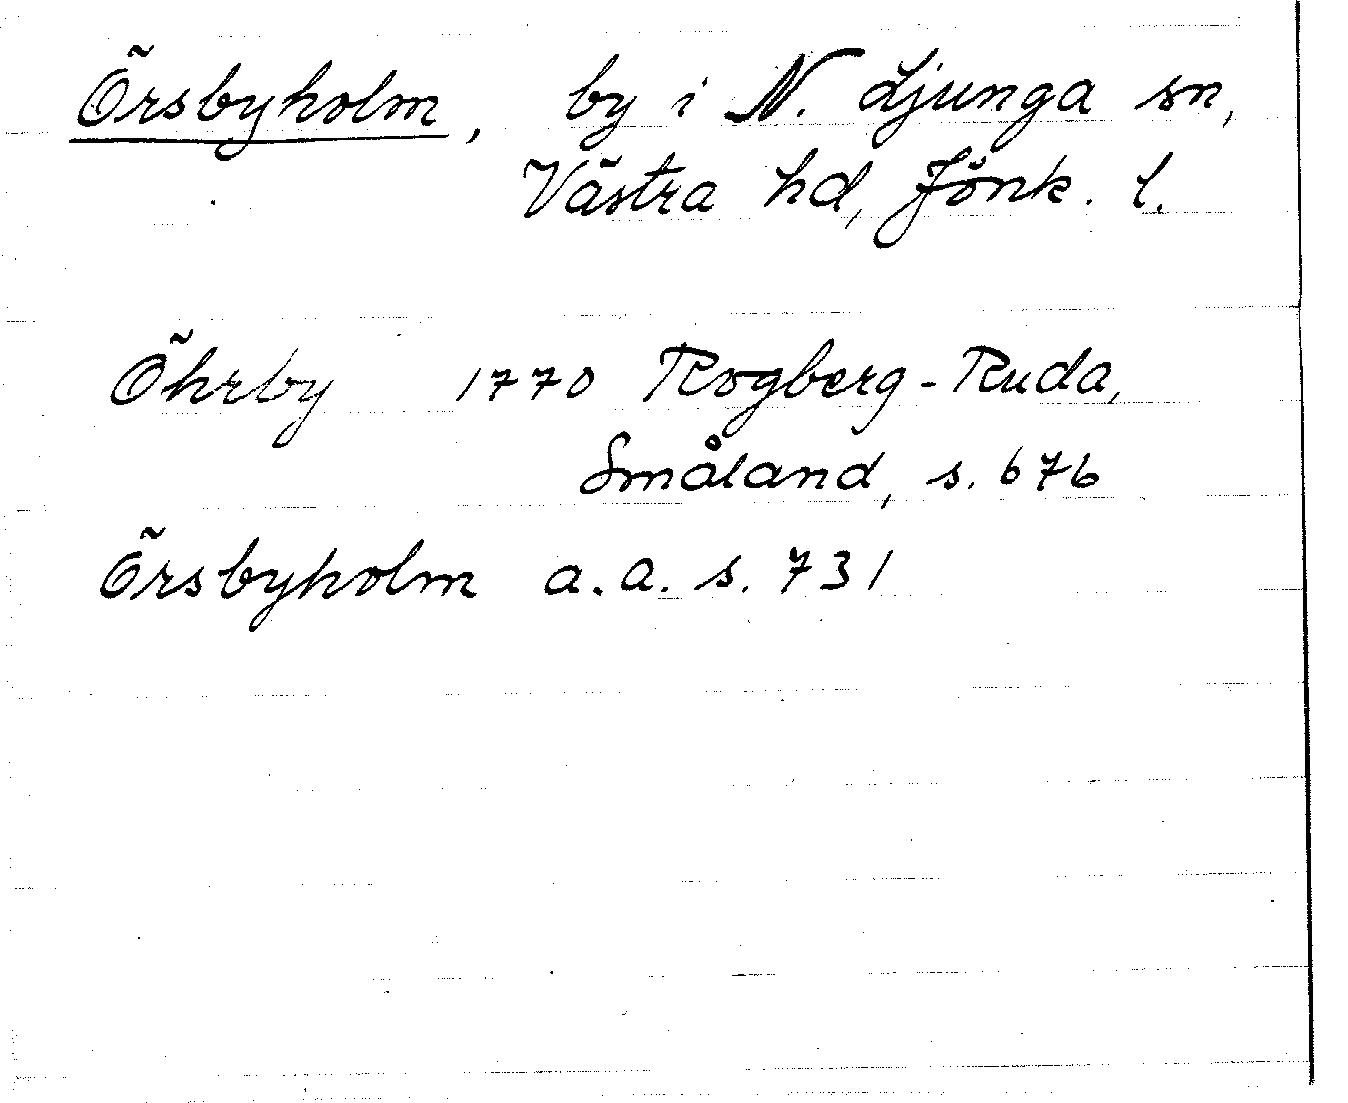 Örsbyholm, by i N. Ljunga sn,
Västra hd, Jönk. l.
Öhrby 1770 Rogberg-Ruda,
Småland, s. 676
Örsbyholm a.a. s. 731